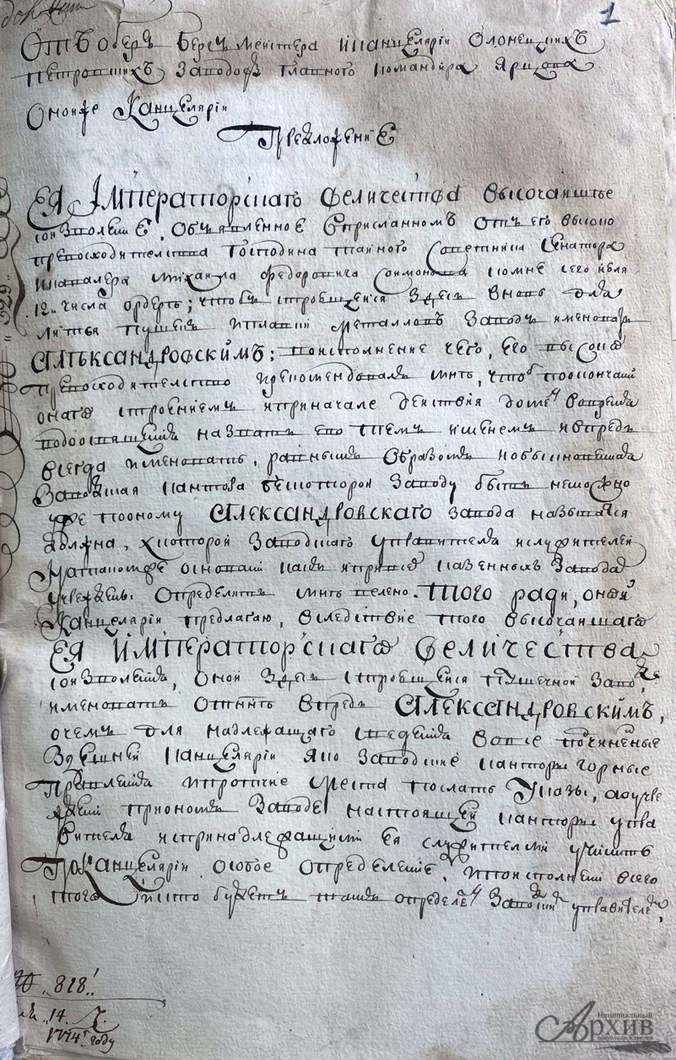 1
Отъ оберъ Бергъ мейстера и канцеляріи Олонецкихъ
Петровскихъ заводовъ главного командира Ярцова
Оноиже Канцеляріи
Предложеніе
ЕЯ ІМПЕРАТОРСКАГО Величества высочайшее
соизволеніе, объявленное въ присланномъ отъ его высоко
превосходительства Господина тайного Советника Сенатора
и кавалера Михаила Федоровича Соймонова ко мне сего
12. числа ордере; чтобъ строющейся здесь вновь для
литья пушекъ и плавки металловъ заводъ именовать
АЛЕКСАНДРОВСКИМЪ: во исполнение чего, его высоко
превосходительство рекомендовалъ мнѣ, чтобъ по окончаніи
онаго строениемъ и при начале действія домен
назвать его темъ имянемъ и впредь
всегда именовать, равнымъ образомъ
Заводская кантора
уже по оному АЛЕКСАНДРОВСКАГО завода называться
должна, х которой заводскаго управителя и служителей
на таковомже основаніи какъ и протчіе казенныхъ завода
учреждены определить мнѣ велено. Того ради, оной
Канцеляріи предлагаю, вследствие того высочайшаго
ЕЯ ИМПЕРАТОРСКАГО ВЕЛИЧЕСТВА
соизволенія, оной здесь строющейся пушечной заводъ,
именовать отныне впредь АЛЕКСАНДРОВСКИМЪ,
о чемъ для надлежащаго сведенія во все подчиненные
здешней Канцеляріи яко заводские канторы горные
Правленія и протчие места послать Указы, а о учре
жденіи при ономъ заводе настоящей канторы упра
вителя и принадлежащими къ ей служителми учинить
Канцеляріи особое определение. И по исполненіи всего
того кто будетъ тамъ определенъ заводскимъ управителемъ,
818
14.
1774 году
Национальный
АРХИВ